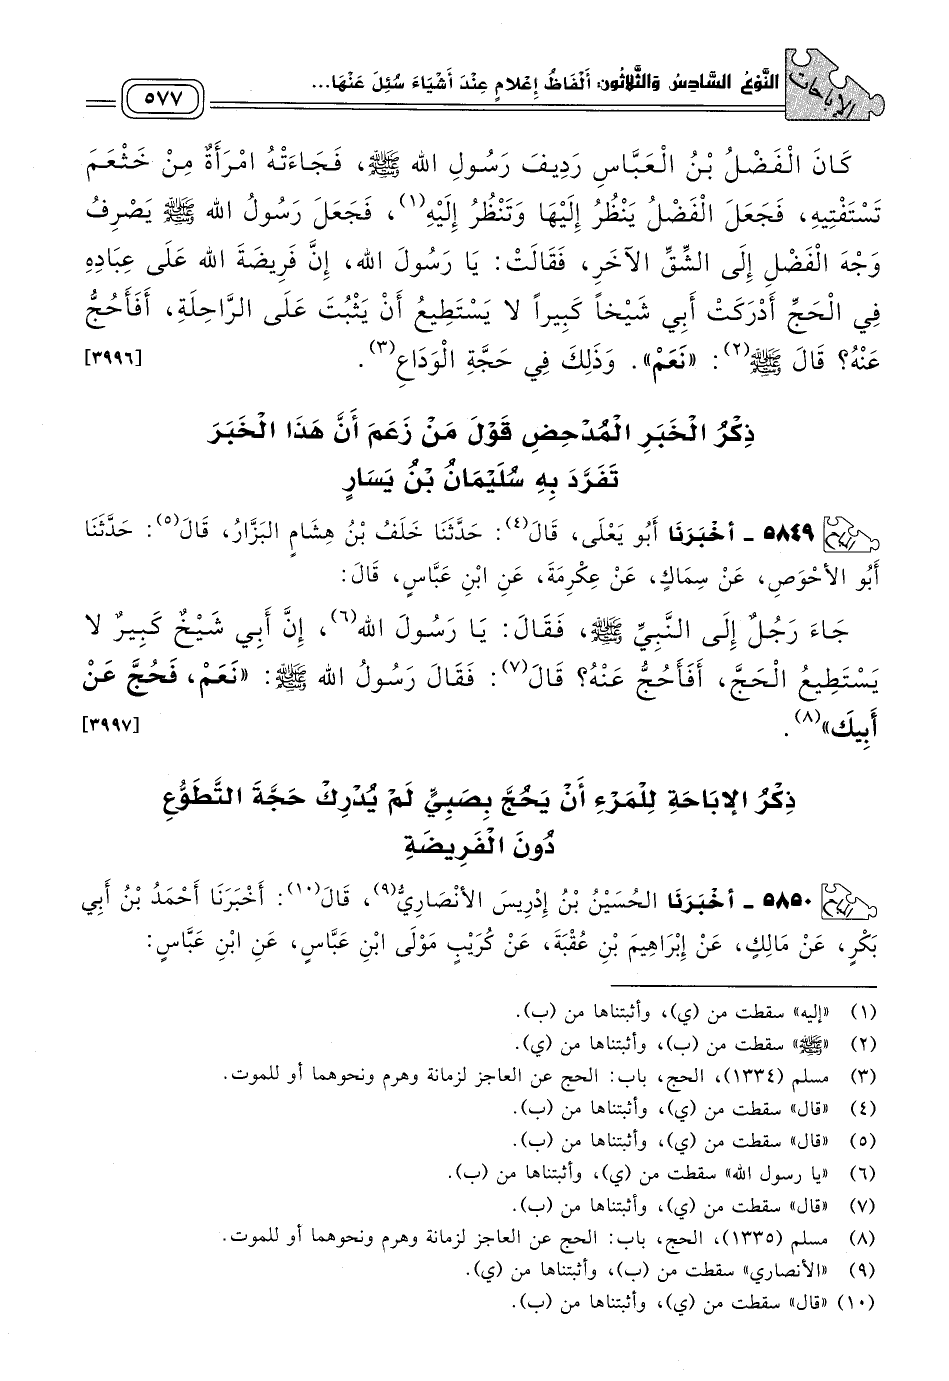 الإباحات
النَّوْعُ السَّادِسُ وَالثَّلَاثُونَ: أَلْفَاظُ إِعْلَامٍ عِنْدَ أَشْيَاءَ سُئِلَ عَنْهَا...
٥٧٧
كَانَ الْفَضْلُ بْنُ الْعَبَّاسِ رَدِيفَ رَسُولِ الله ﷺ، فَجَاءَتْهُ امْرَأَةٌ مِنْ خَثْعَمَ
تَسْتَفْتِيهِ، فَجَعَلَ الْفَضْلُ يَنْظُرُ إِلَيْهَا وَتَنْظُرُ إِلَيْهِ(١)، فَجَعَلَ رَسُولُ الله ﷺ يَصْرِفُ
وَجْهَ الْفَضْلِ إِلَى الشِّقِّ الآخَرِ، فَقَالَتْ: يَا رَسُولَ الله، إِنَّ فَرِيضَةَ الله عَلَى عِبَادِهِ
فِي الْحَجِّ أَدْرَكَتْ أَبِي شَيْخاً كَبِيراً لا يَسْتَطِيعُ أَنْ يَثْبُتَ عَلَى الرَّاحِلَةِ، أَفَأَحُجُّ
عَنْهُ؟ قَالَ ﷺ(٢): «نَعَمْ». وَذَلِكَ فِي حَجَّةِ الْوَدَاعِ(٣). [٣٩٩٦]
ذِكْرُ الْخَبَرِ الْمُدْحِضِ قَوْلَ مَنْ زَعَمَ أَنَّ هَذَا الْخَبَرَ
تَفَرَّدَ بِهِ سُلَيْمَانُ بْنُ يَسَارٍ
٥٨٤٩ - أَخْبَرَنَا أَبُو يَعْلَى، قَالَ(٤): حَدَّثَنَا خَلَفُ بْنُ هِشَامٍ البَزَّارُ، قَالَ(٥): حَدَّثَنَا
أَبُو الأَحْوَصِ، عَنْ سِمَاكٍ، عَنْ عِكْرِمَةَ، عَنِ ابْنِ عَبَّاسٍ، قَالَ:
جَاءَ رَجُلٌ إِلَى النَّبِيِّ ﷺ، فَقَالَ: يَا رَسُولَ الله(٦)، إِنَّ أَبِي شَيْخٌ كَبِيرٌ لا
يَسْتَطِيعُ الْحَجَّ، أَفَأَحُجُّ عَنْهُ؟ قَالَ(٧): فَقَالَ رَسُولُ الله ﷺ: «نَعَمْ، فَحُجَّ عَنْ
أَبِيكَ»(٨). [٣٩٩٧]
ذِكْرُ الإِبَاحَةِ لِلْمَرْءِ أَنْ يَحُجَّ بِصَبِيٍّ لَمْ يُدْرِكْ حَجَّةَ التَّطَوُّعِ
دُونَ الْفَرِيضَةِ
٥٨٥٠ - أَخْبَرَنَا الحُسَيْنُ بْنُ إِدْرِيسَ الأَنْصَارِيُّ(٩)، قَالَ(١٠): أَخْبَرَنَا أَحْمَدُ بْنُ أَبِي
بَكْرٍ، عَنْ مَالِكٍ، عَنْ إِبْرَاهِيمَ بْنِ عُقْبَةَ، عَنْ كُرَيْبٍ مَوْلَى ابْنِ عَبَّاسٍ، عَنِ ابْنِ عَبَّاسٍ:
(١) «إليه» سقطت من (ي)، وأثبتناها من (ب).
(٢) «ﷺ» سقطت من (ب)، وأثبتناها من (ي).
(٣) مسلم (١٣٣٤)، الحج، باب: الحج عن العاجز لزمانة وهرم ونحوهما أو للموت.
(٤) «قال» سقطت من (ي)، وأثبتناها من (ب).
(٥) «قال» سقطت من (ي)، وأثبتناها من (ب).
(٦) «يا رسول الله» سقطت من (ي)، وأثبتناها من (ب).
(٧) «قال» سقطت من (ي)، وأثبتناها من (ب).
(٨) مسلم (١٣٣٥)، الحج، باب: الحج عن العاجز لزمانة وهرم ونحوهما أو للموت.
(٩) «الأنصاري» سقطت من (ب)، وأثبتناها من (ي).
(١٠) «قال» سقطت من (ي)، وأثبتناها من (ب).